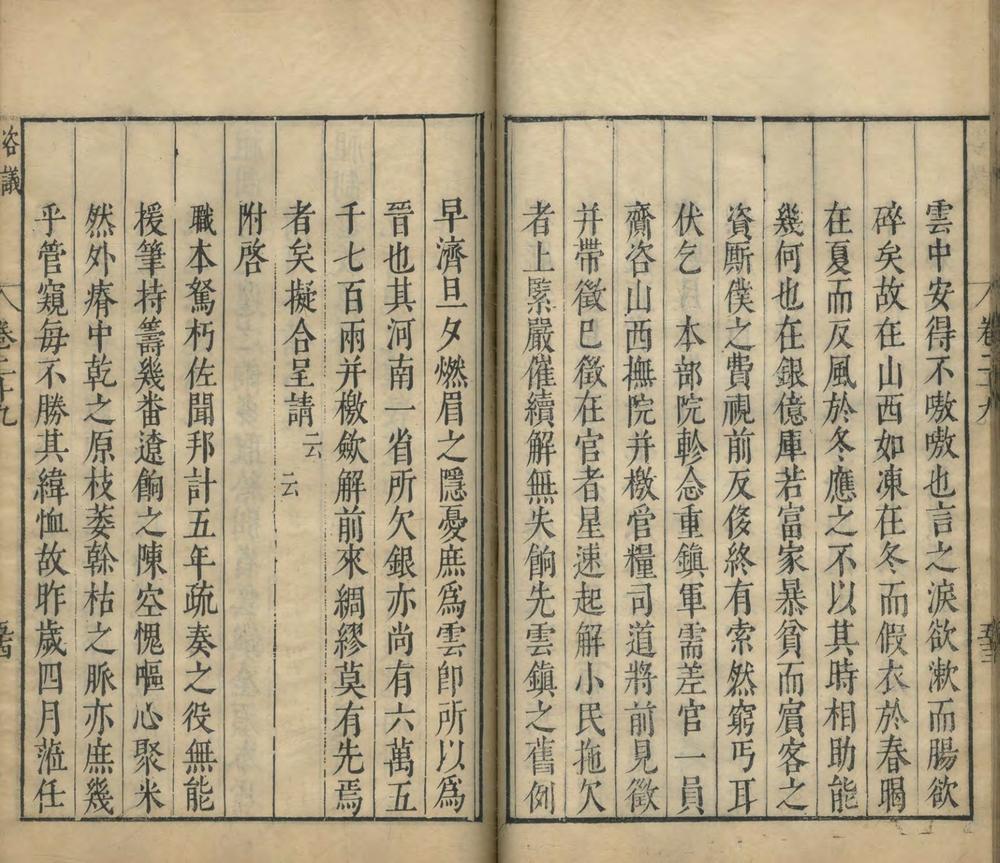 雲中安得不嗷嗷也言之淚欲漱而腸欲
碎矣故在山西如凍在冬而假衣於春暍
在夏而反風於冬應之不以其時相助能
幾何也在銀億庫若富家暴貧而賓客之
資厮僕之費視前反侈終有索然窮丐耳
伏乞 本部院軫念重鎮軍需差官一員
齎咨山西撫院并檄管糧司道將前見徵
并帶徵已徵在官者星速起解小民拖欠
者上緊嚴催續解無失餉先雲鎮之舊例
早濟旦夕燃眉之隱憂庶爲雲卽所以爲
晉也其河南一省所欠銀亦尚有六萬五
千七百兩并檄歛解前來綢繆莫有先焉
者矣擬合呈請云云
附啓
職本駑朽佐聞邦計五年疏奏之役無能
援筆持籌幾畨遼餉之陳空愧嘔心聚米
然外瘠中乾之原枝萎榦枯之脈亦庶幾
乎管窺每不勝其緯恤故昨歲四月涖任
咨議
卷二十九